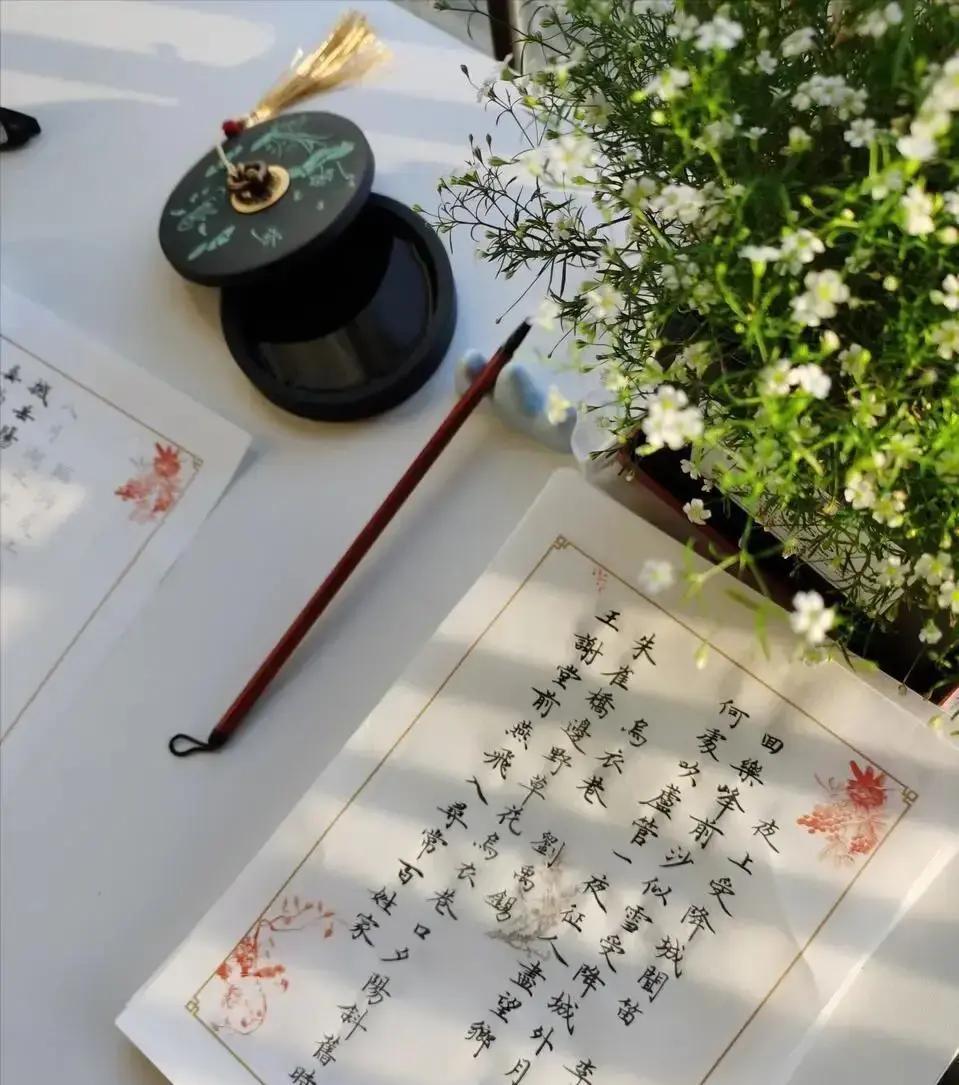 夜上受降城聞笛 李
回樂峰前沙似雪受降城外月
何處吹蘆管一夜征人盡望鄉
烏衣巷 劉禹錫
朱雀橋邊野草花烏衣巷口夕陽斜舊時
王謝堂前燕飛入尋常百姓家
城